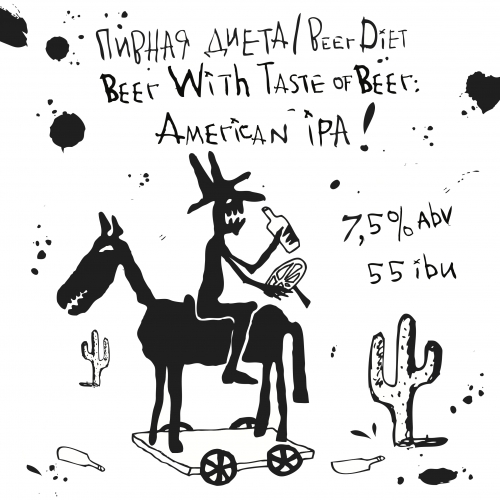 ПИВНАЯ ДИЕТА/BEER DIET
BEER WITH TASTE OF BEER:
AMERICAN IPA!
7,5% ABV
55 ibu